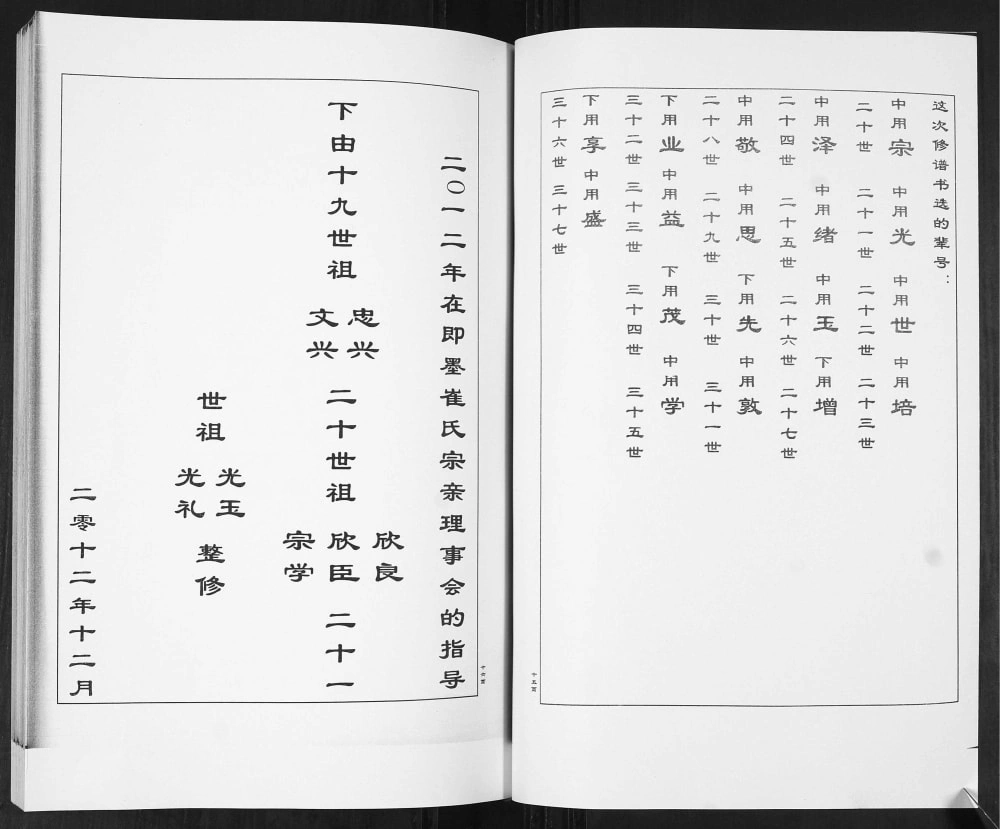 这次修谱书选的辈号：
中用宗 中用光 中用世 中用培
二十世 二十一世 二十二世 二十三世
中用泽 中用绪 中用玉 下用增
二十四世 二十五世 二十六世 二十七世
中用敬 中用思 下用先 中用敦
二十八世 二十九世 三十世 三十一世
下用业 中用益 下用茂 中用学
三十二世 三十三世 三十四世 三十五世
下用享 中用盛
三十六世 三十七世
十五页
十六页
二〇一二年在即墨崔氏宗亲理事会的指导
下由十九世祖 忠兴 文兴 二十世祖 欣良 欣臣 宗学 二十一
世祖 光玉 光礼 整修
二零十二年十二月